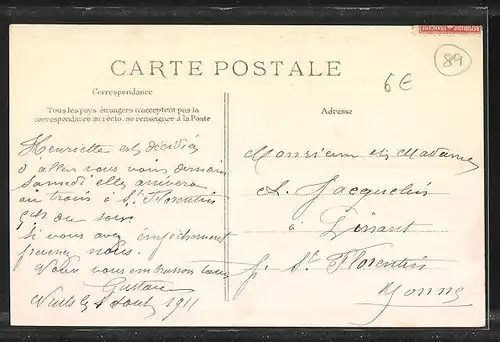 RÉPUBLIQUE FRANÇAISE
89
CARTE POSTALE
6€
Correspondance
Tous les pays étrangers n'acceptent pas la
correspondance au recto, se renseigner à la Poste
Adresse
Henriette est décidée
d'aller vous voir demain
Samedi elle arrivera
au train à St Florentin
du soir
Si vous avez empêchement
prevenez nous.
vous embrassons tous
Gustave
Août 1911
Monsieur et Madame
Jacquelin
à
p. St Florentin
Yonne